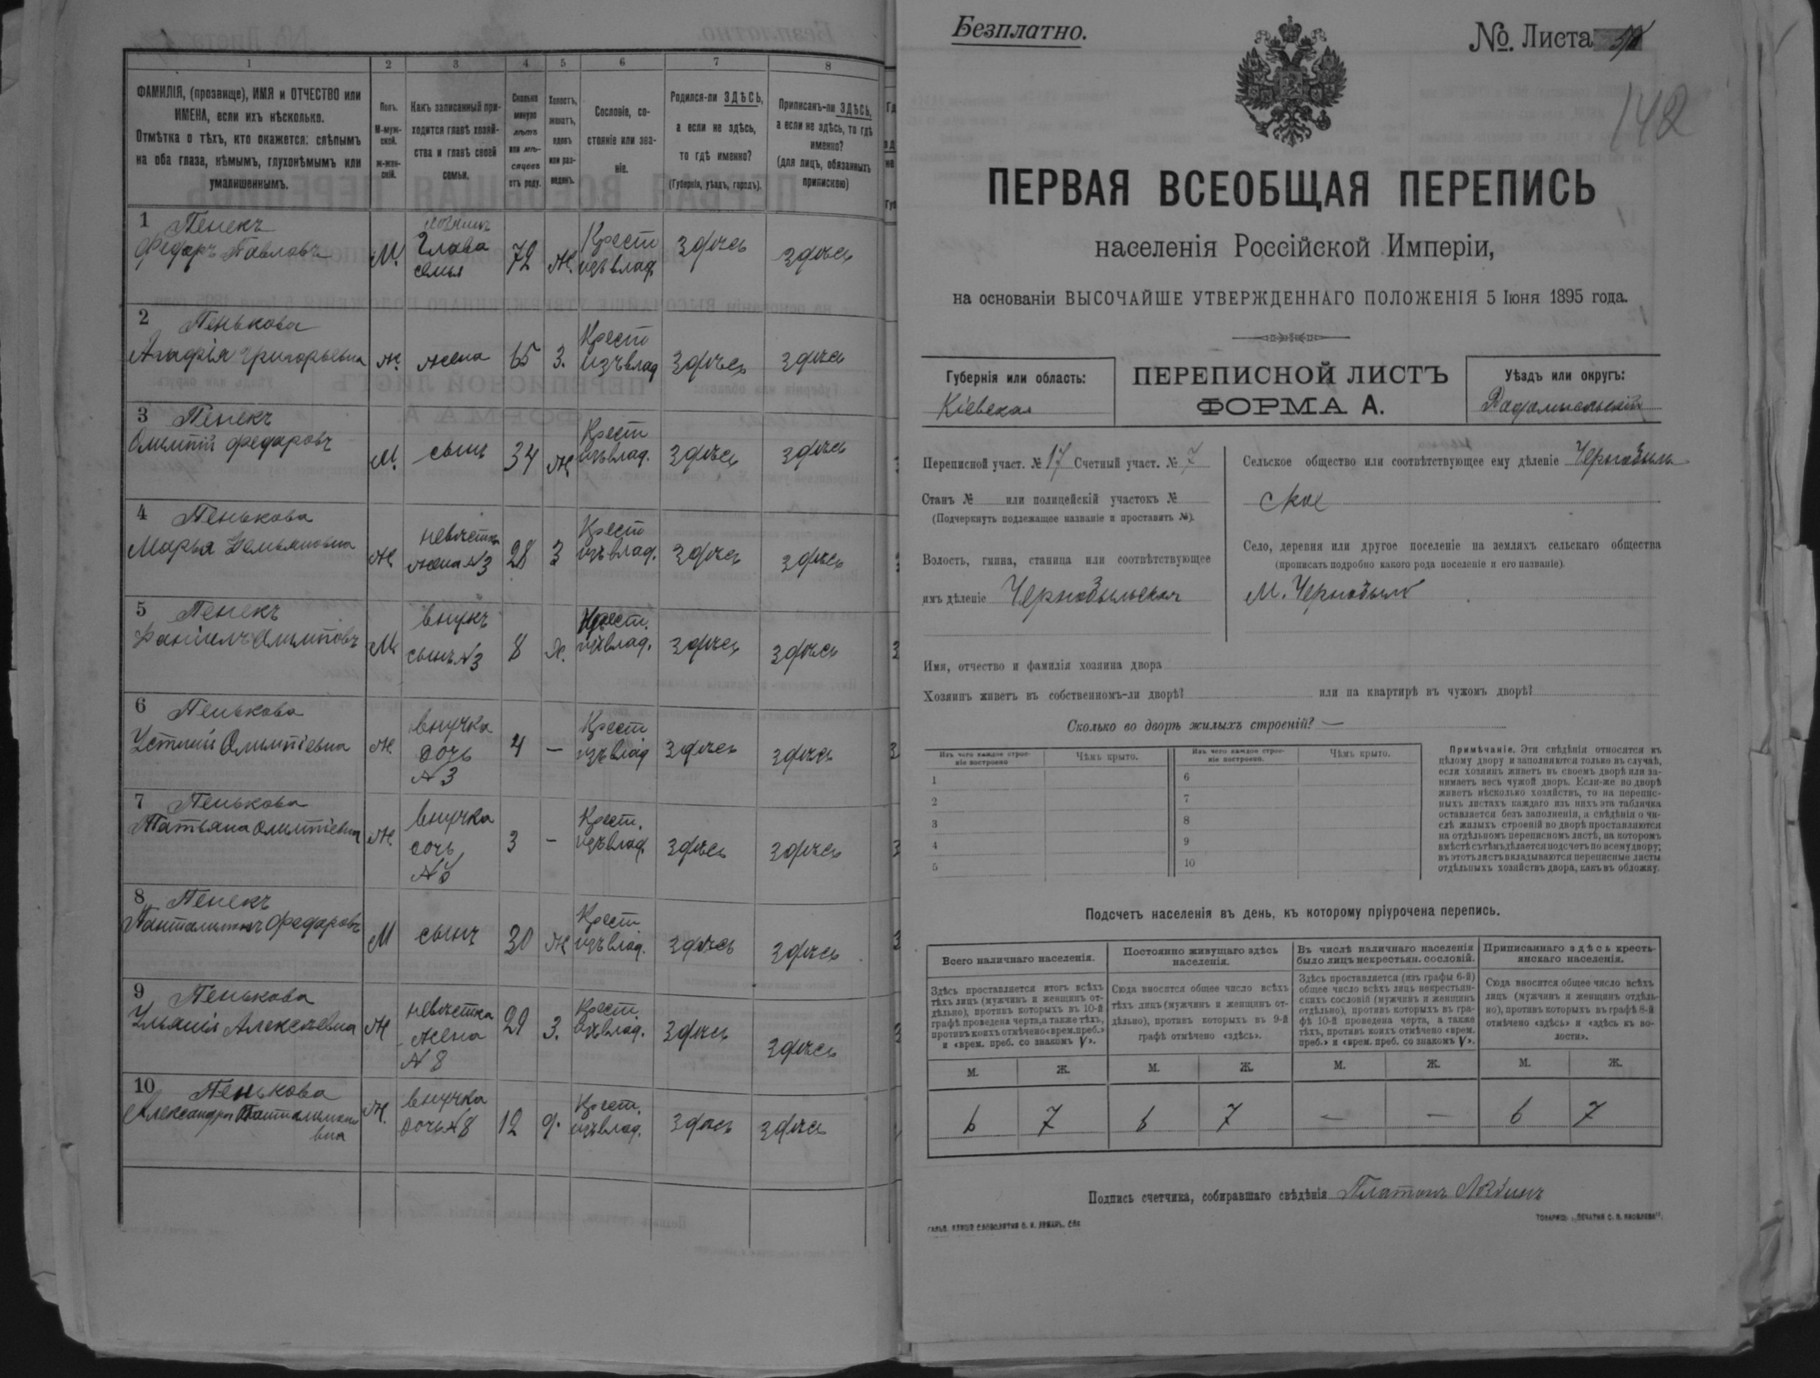 1 2 3 4 5 6 7 8
ФАМИЛІЯ, (прозвище), ИМЯ и ОТЧЕСТВО или
ИМЕНА, если ихъ нѣсколько.
Отмѣтка о тѣхъ, кто окажется: слѣпымъ
на оба глаза, нѣмымъ, глухонѣмымъ или
умалишеннымъ.
Полъ.
М-муж-
ской.
ж-жен-
скій.
Какъ записанный при-
ходится главѣ хозяй-
ства и главѣ своей
семьи.
Сколько
минуло
лѣтъ
или мѣ-
сяцевъ
отъ роду.
Холостъ,
женатъ,
вдовъ
или раз-
веденъ.
Сословіе, со-
стояніе или зва-
ніе.
Родился-ли ЗДѢСЬ,
а если не здѣсь,
то гдѣ именно?
(Губернія, уѣздъ, городъ).
Приписанъ-ли ЗДѢСЬ,
а если не здѣсь, то гдѣ
именно?
(для лицъ, обязанныхъ
припискою)
1 Пенекъ
Федоръ Павловъ М. Глава семьи 72 ж. Крест. изъ влад. здѣсь здѣсь
2 Пенькова
Агафія Григорьевна ж. жена 65 з. Крест изъ влад здѣсь здѣсь
3 Пенекъ
Олимпій Федоровъ М. сынъ 34 ж Крест изъ влад. здѣсь здѣсь
4 Пенькова
Марья Демьяновна ж невѣстка жена №3 28 з Крест изъ влад. здѣсь здѣсь
5 Пенекъ
Даніилъ Олимпіовъ М внукъ сынъ №3 8 х. Крест. изъ влад. здѣсь здѣсь
6 Пенькова
Олимпіевна ж внучка дочь №3 4 — Крест изъ влад здѣсь здѣсь
7 Пенькова
Татьяна Олимпіевна ж. внучка дочь 3 – Крест. изъ влад. здѣсь здѣсь
8 Пенекъ
Федоровъ М сынъ 30 ж Крест. изъ влад. здѣсь здѣсь
9 Пенькова
Ульянія Алексѣевна ж невѣстка жена №8 29 з. Крест. изъ влад. здѣсь здѣсь
10 Пенькова
Александра ж. внучка дочь №8 12 д. Крест. изъ влад. здѣсь здѣсь
Безплатно.
№. Листа
142
ПЕРВАЯ ВСЕОБЩАЯ ПЕРЕПИСЬ
населенія Россійской Имперіи,
на основаніи ВЫСОЧАЙШЕ УТВЕРЖДЕННАГО ПОЛОЖЕНІЯ 5 Іюня 1895 года.
Губернія или область:
Кіевская
ПЕРЕПИСНОЙ ЛИСТЪ
ФОРМА А.
Уѣздъ или округъ:
Радомысльскій
Переписной участ. № 17 Счетный участ. № 7
Станъ № или полицейскій участокъ №
(Подчеркнуть подлежащее названіе и проставить №).
Волость, гмина, станица или соотвѣтствующее
имъ дѣленіе Чернобыльская
Сельское общество или соотвѣтствующее ему дѣленіе Чернобыль
ское
Село, деревня или другое поселеніе на земляхъ сельскаго общества
(прописать подробно какого рода поселеніе и его названіе).
М. Чернобыль
Имя, отчество и фамилія хозяина двора
Хозяинъ живетъ въ собственномъ-ли дворѣ? или на квартирѣ въ чужомъ дворѣ?
Сколько во дворѣ жилыхъ строеній? —
Изъ чего каждое строе-
ніе построено
Чѣмъ крыто.
Изъ чего каждое строе-
ніе построено.
Чѣмъ крыто.
1 6
2 7
3 8
4 9
5 10
Примѣчаніе. Эти свѣдѣнія относятся къ
цѣлому двору и заполняются только въ случаѣ,
если хозяинъ живетъ въ своемъ дворѣ или за-
нимаетъ весь чужой дворъ. Если-же во дворѣ
живетъ нѣсколько хозяйствъ, то на перепис-
ныхъ листахъ каждаго изъ нихъ эта табличка
оставляется безъ заполненія, а свѣдѣнія о чи-
слѣ жилыхъ строеній во дворѣ проставляются
на отдѣльномъ переписномъ листѣ, на которомъ
вмѣстѣ съ тѣмъ дѣлается подсчетъ по всему двору;
въ этотъ листъ вкладываются переписные листы
отдѣльныхъ хозяйствъ двора, какъ въ обложку.
Подсчетъ населенія въ день, къ которому пріурочена перепись.
Всего наличнаго населенія.
Здѣсь проставляется итогъ всѣхъ
тѣхъ лицъ (мужчинъ и женщинъ от-
дѣльно), противъ которыхъ въ 10-й
графѣ проведена черта, а также тѣхъ,
противъ коихъ отмѣчено «врем. преб.»
и «врем. преб. со знакомъ V».
Постоянно живущаго здѣсь
населенія.
Сюда вносится общее число всѣхъ
тѣхъ лицъ (мужчинъ и женщинъ от-
дѣльно), противъ которыхъ въ 9-й
графѣ отмѣчено «здѣсь».
Въ числѣ наличнаго населенія
было лицъ некрестьян. сословій.
Здѣсь проставляется (изъ графы 6-й)
общее число всѣхъ лицъ некрестьян-
скихъ сословій (мужчинъ и женщинъ
отдѣльно), противъ которыхъ въ гра-
фѣ 10-й проведена черта, а также
тѣхъ, противъ коихъ отмѣчено «врем.
преб.» и «врем. преб. со знакомъ V».
Приписаннаго здѣсь кресть-
янскаго населенія.
Сюда вносится общее число всѣхъ
лицъ (мужчинъ и женщинъ отдѣль-
но), противъ которыхъ въ графѣ 8-й
отмѣчено «здѣсь» и «здѣсь въ во-
лости».
М. Ж. М. Ж. М. Ж. М. Ж.
6 7 6 7 — — 6 7
Подпись счетчика, собиравшаго свѣдѣнія Платонъ